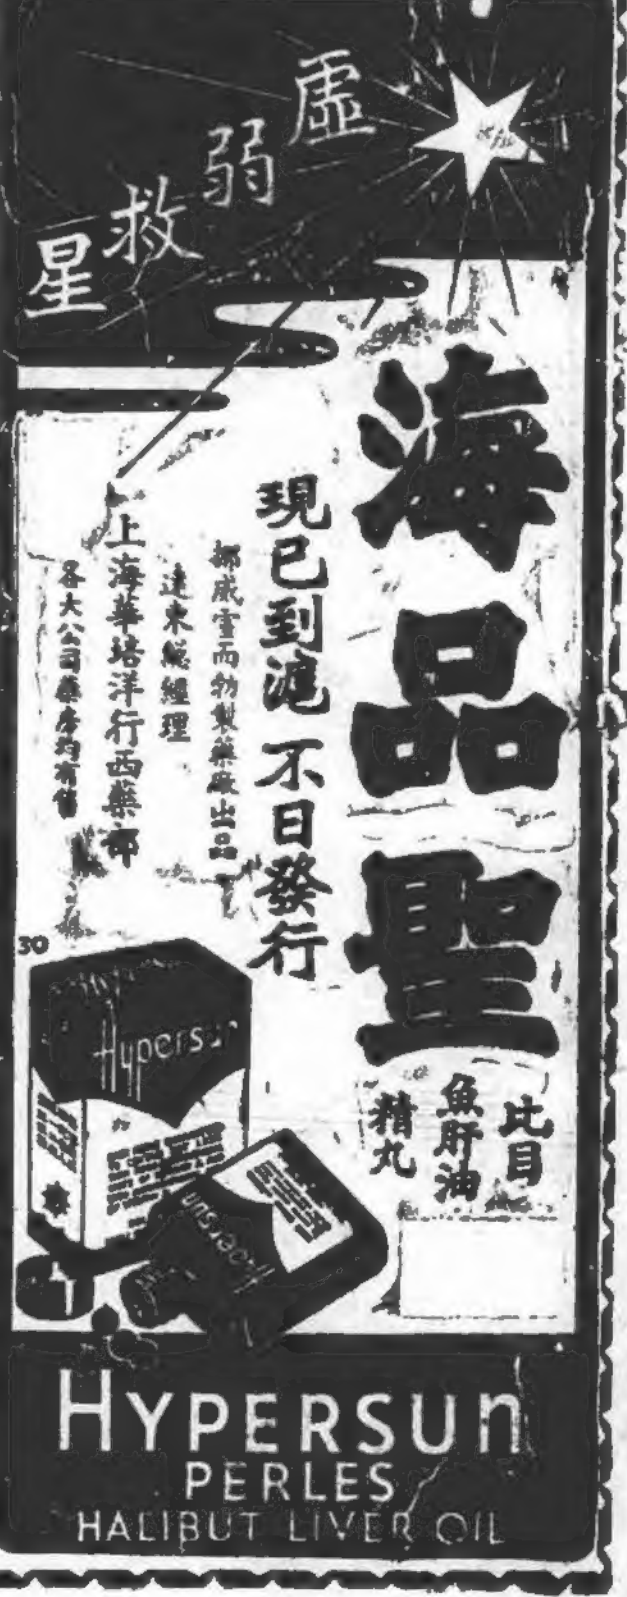 虛弱救星
海品聖
比目
魚肝油
精丸
現已到滬 不日發行
挪威雪而勃製藥廠出品
遠東總經理
上海華培洋行西藥部
各大公司藥房均有售
30
Hypersun
Hypersun
HYPERSUN
PERLES
HALIBUT LIVER OIL